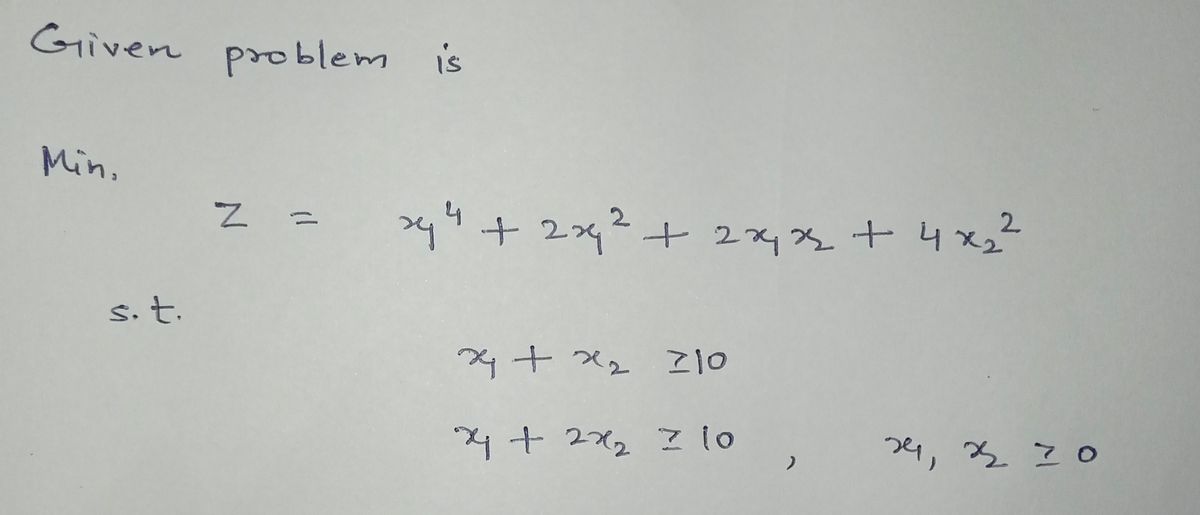 Given problem is
Min.
Z = x₁⁴ + 2x₁² + 2x₁x₂ + 4x₂²
s.t.
x₁ + x₂ ≥ 10
x₁ + 2x₂ ≥ 10 , x₁, x₂ ≥ 0